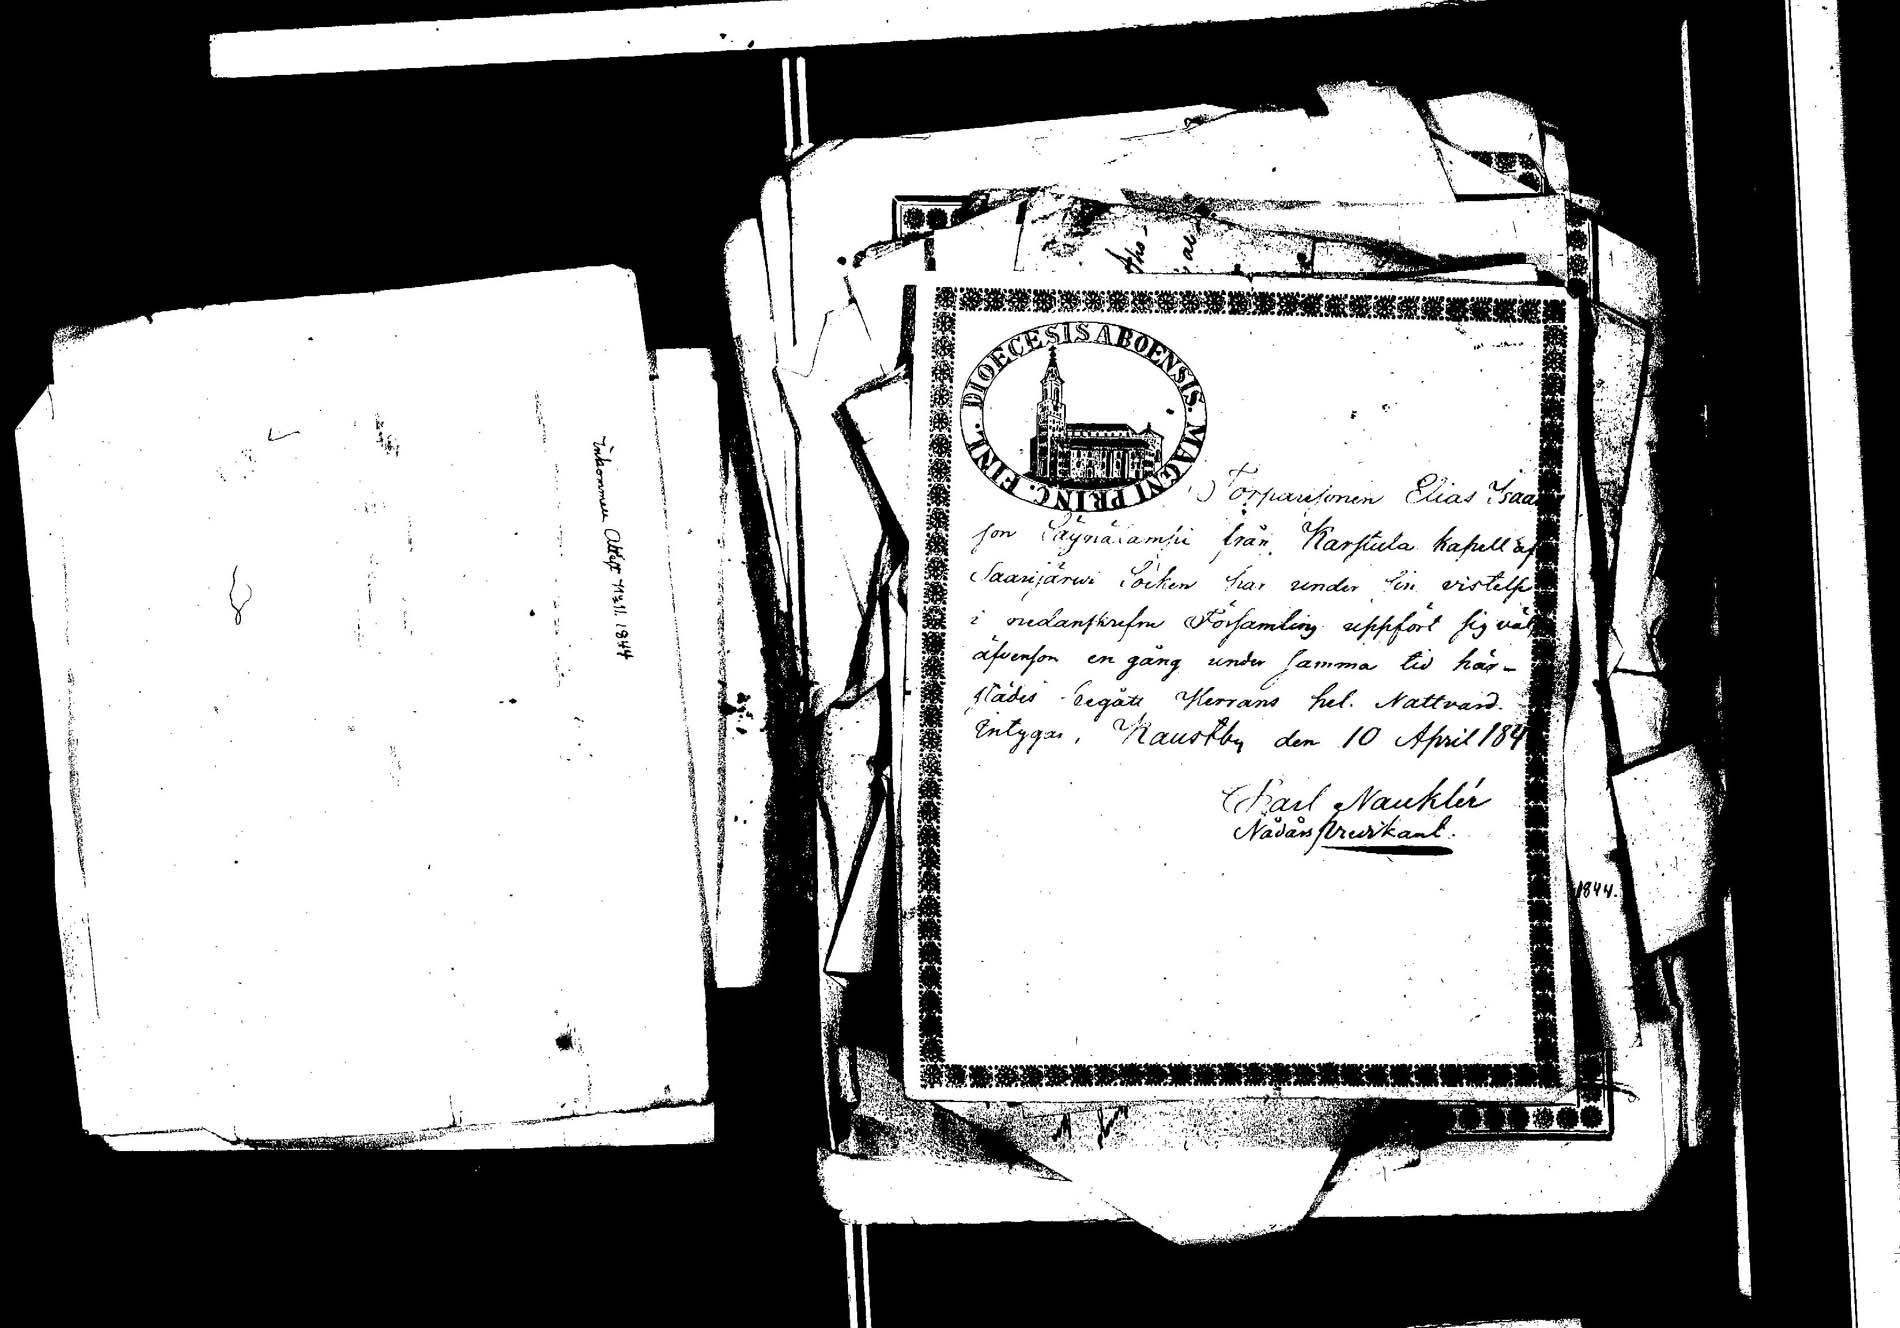 Inkommen Attest N:o 11. 1844
DIOECESIS ABOENSIS. MAGNI PRINC. FINL.
Torparesonen Elias Isaac
son Läynälampi från Karstula kapell af
Saarijärwi Socken har under sin vistelse
i nedanskrefne Församling uppfört sig väl
äfvensom en gång under samma tid här-
städes begått Herrans hel. Nattvard.
Intygar, Kaustby den 10 April 184
Karl Nauklér
Nådårspredikant.
1844.